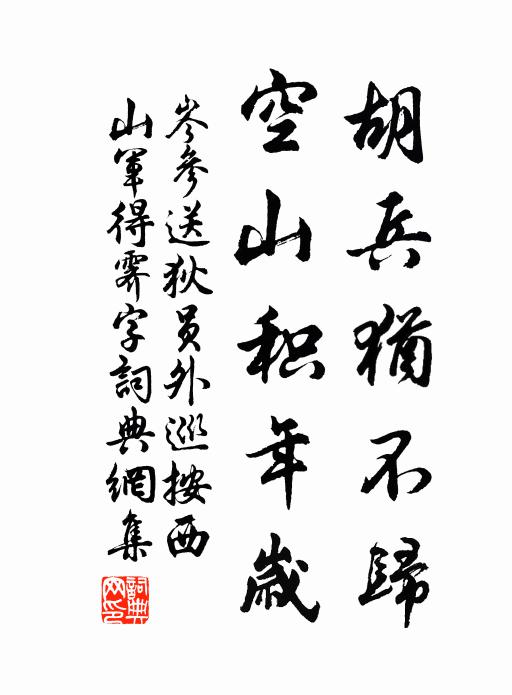 胡兵猶不歸
空山积年歲
岑參送狄员外巡按西
山軍得霽字詞典網集
詞典
网印